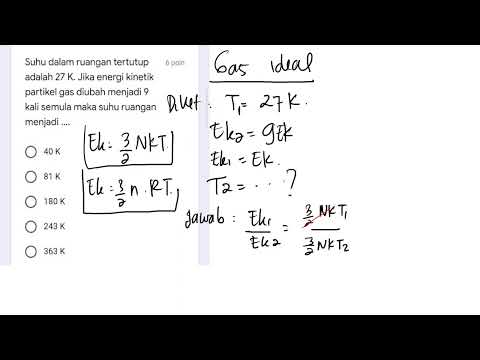 Suhu dalam ruangan tertutup
6 poin
adalah 27 K. Jika energi kinetik
partikel gas diubah menjadi 9
kali semula maka suhu ruangan
menjadi ....
Ek = 3/2 NKT.
40 K
Ek = 3/2 n. RT.
81 K
180 K
243 K
363 K
Gas ideal
Diket : T1 = 27K.
Ek2 = 9Ek
Ek1 = Ek.
T2 = . . . ?
Jawab : Ek1/Ek2 = 3/2 NKT1 / 3/2 NKT2